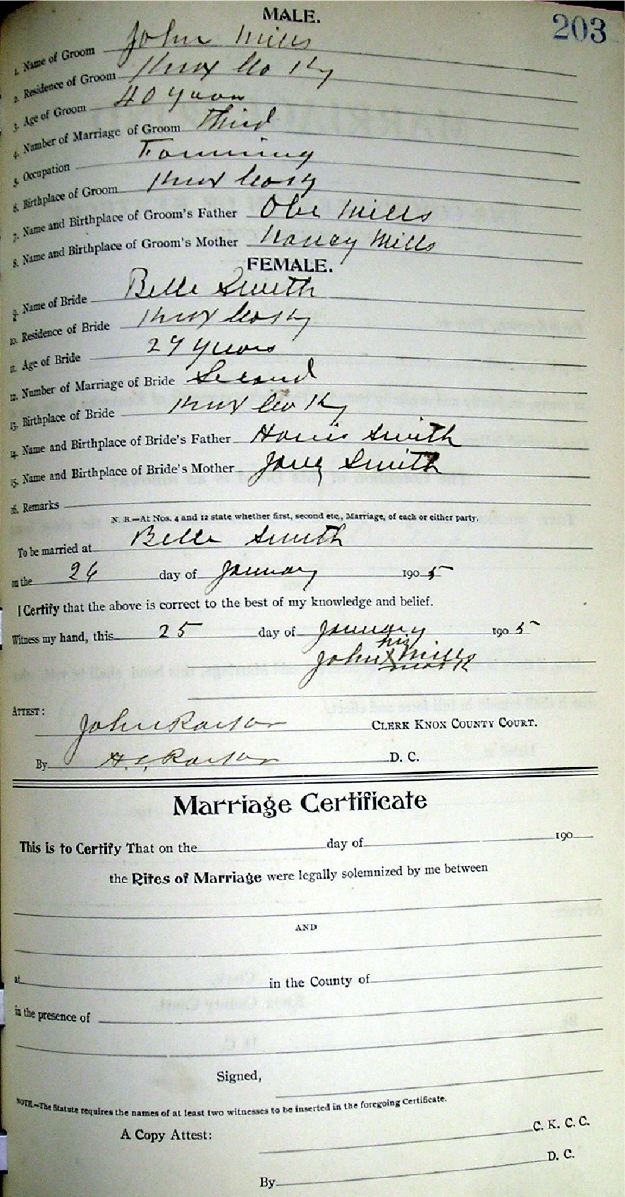 MALE.
203
1. Name of Groom John Mills
2. Residence of Groom Knox Co Ky
3. Age of Groom 40 years
4. Number of Marriage of Groom Third
5. Occupation Farming
6. Birthplace of Groom Knox Co Ky
7. Name and Birthplace of Groom's Father Obe Mills
8. Name and Birthplace of Groom's Mother Nancy Mills
FEMALE.
9. Name of Bride Belle Smith
10. Residence of Bride Knox Co Ky
11. Age of Bride 27 years
12. Number of Marriage of Bride Second
13. Birthplace of Bride Knox Co Ky
14. Name and Birthplace of Bride's Father Smith
15. Name and Birthplace of Bride's Mother Jane Smith
16. Remarks
N. B.—At Nos. 4 and 12 state whether first, second etc., Marriage, of each or either party.
To be married at Belle Smith
on the 26 day of January 1905
I Certify that the above is correct to the best of my knowledge and belief.
Witness my hand, this 25 day of January 1905
his
John X Mills
mark
ATTEST:
John
CLERK KNOX COUNTY COURT.
By D. C.
Marriage Certificate
This is to Certify That on the day of 190
the Rites of Marriage were legally solemnized by me between
AND
at in the County of
in the presence of
Signed,
NOTE.—The Statute requires the names of at least two witnesses to be inserted in the foregoing Certificate.
A Copy Attest: C. K. C. C.
By D. C.